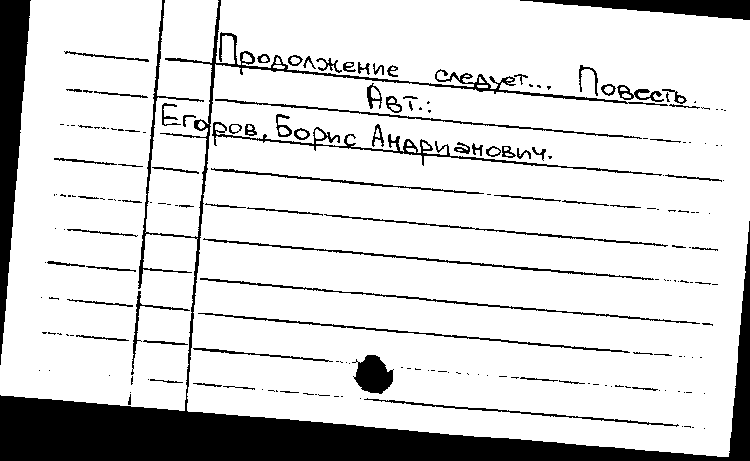 Продолжение следует... Повесть.
Авт.:
Егоров, Борис Андрианович.